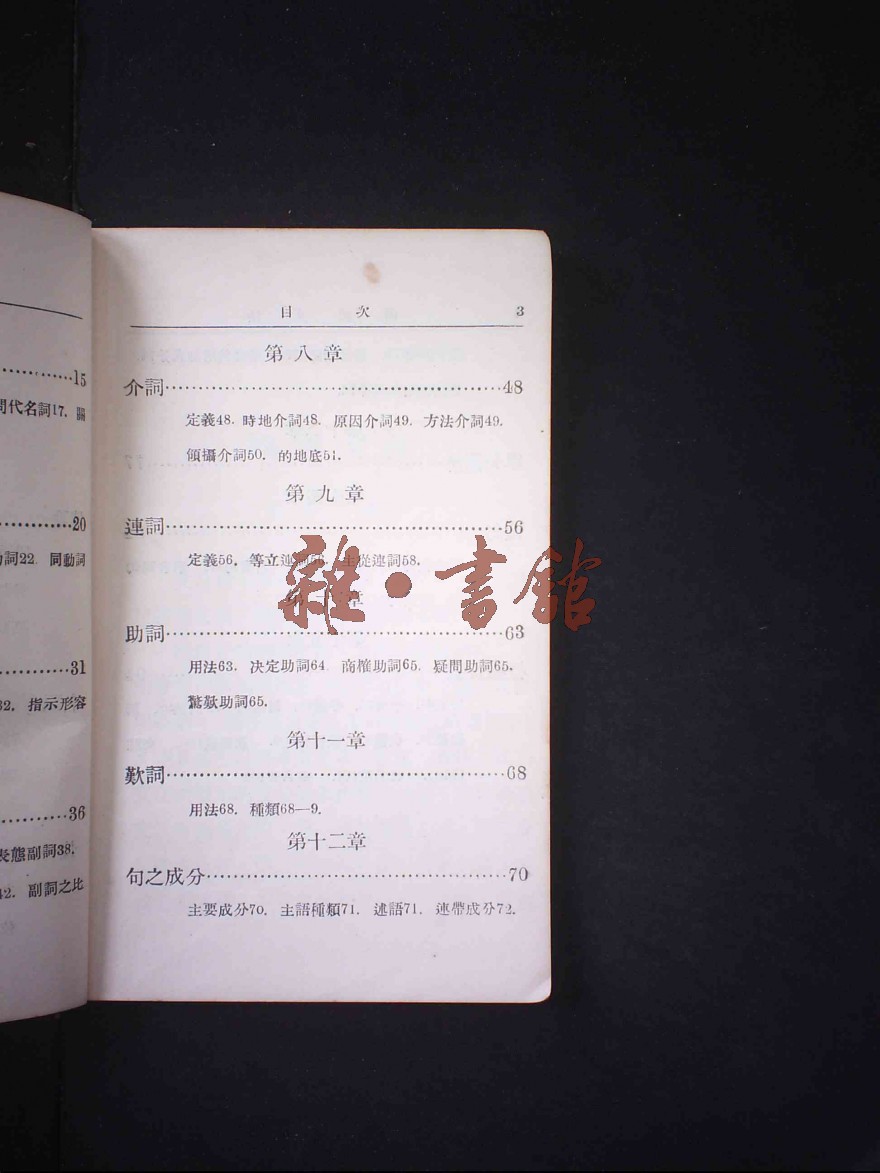 15
問代名詞17. 關
20
詞22. 同動詞
31
32. 指示形容
36
表態副詞38.
42. 副詞之比
目 次 3
第八章
介詞……48
定義48. 時地介詞48. 原因介詞49. 方法介詞49.
領攝介詞50. 的地底51.
第九章
連詞……56
定義56. 等立連詞56. 主從連詞58.
第十章
助詞……63
用法63. 决定助詞64. 商榷助詞65. 疑問助詞65.
驚歎助詞65.
第十一章
歎詞……68
用法68. 種類68—9.
第十二章
句之成分……70
主要成分70. 主語種類71. 述語71. 連帶成分72.
雜·書館